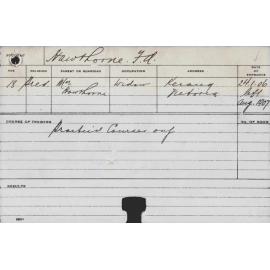 Hawthorne. F.A.
AGE RELIGION PARENT OR GUARDIAN OCCUPATION ADDRESS DATE OF ENTRANCE
18 Pres Mrs Hawthorne Widow Kerang Victoria 24.9.06
left Aug. 1907
COURSE OF TRAINING NO. OF BOOK
Practical Course only
RESULTS